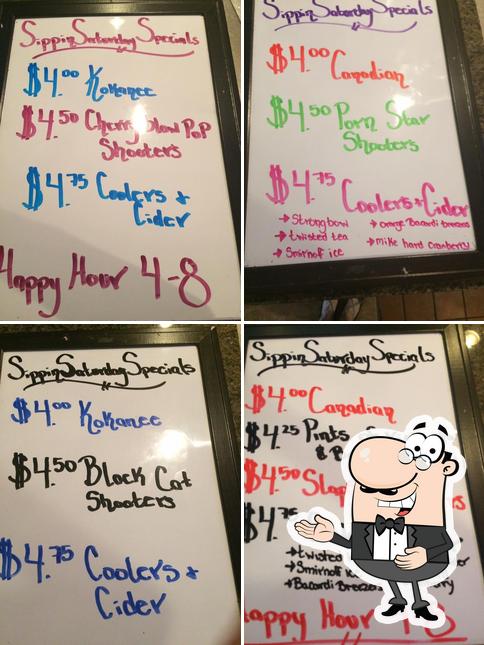 Sippin Saturday Specials
$4.00 Kokanee
$4.50 Cherry Blow Pop
Shooters
$4.75 Coolers &
Cider
Happy Hour 4-8
Sippin Saturday Specials
$4.00 Canadian
$4.50 Porn Star
Shooters
$4.75 Coolers & Cider
→ Strongbow → orange Bacardi breezers
→ twisted tea → mike hard cranberry
→ Smirnof ice
Sippin Saturday Specials
$4.00 Kokanee
$4.50 Black Cat
Shooters
$4.75 Coolers &
Cider
Sippin Saturday Specials
$4.00 Canadian
$4.25 Pints
&
$4.50
$4.75
→ twisted
→ Smirnof
→ Bacardi Breezers
Happy Hour